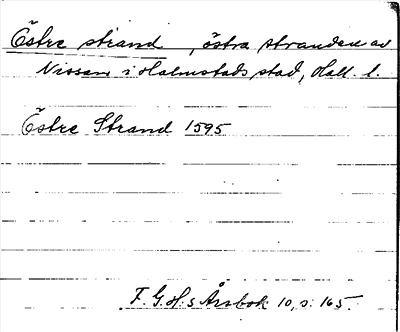 Östre strand, östra stranden av
Nissan i Halmstads stad, Hall. l.
Östre Strand 1595
F. G. H:s Årsbok 10, s. 165.